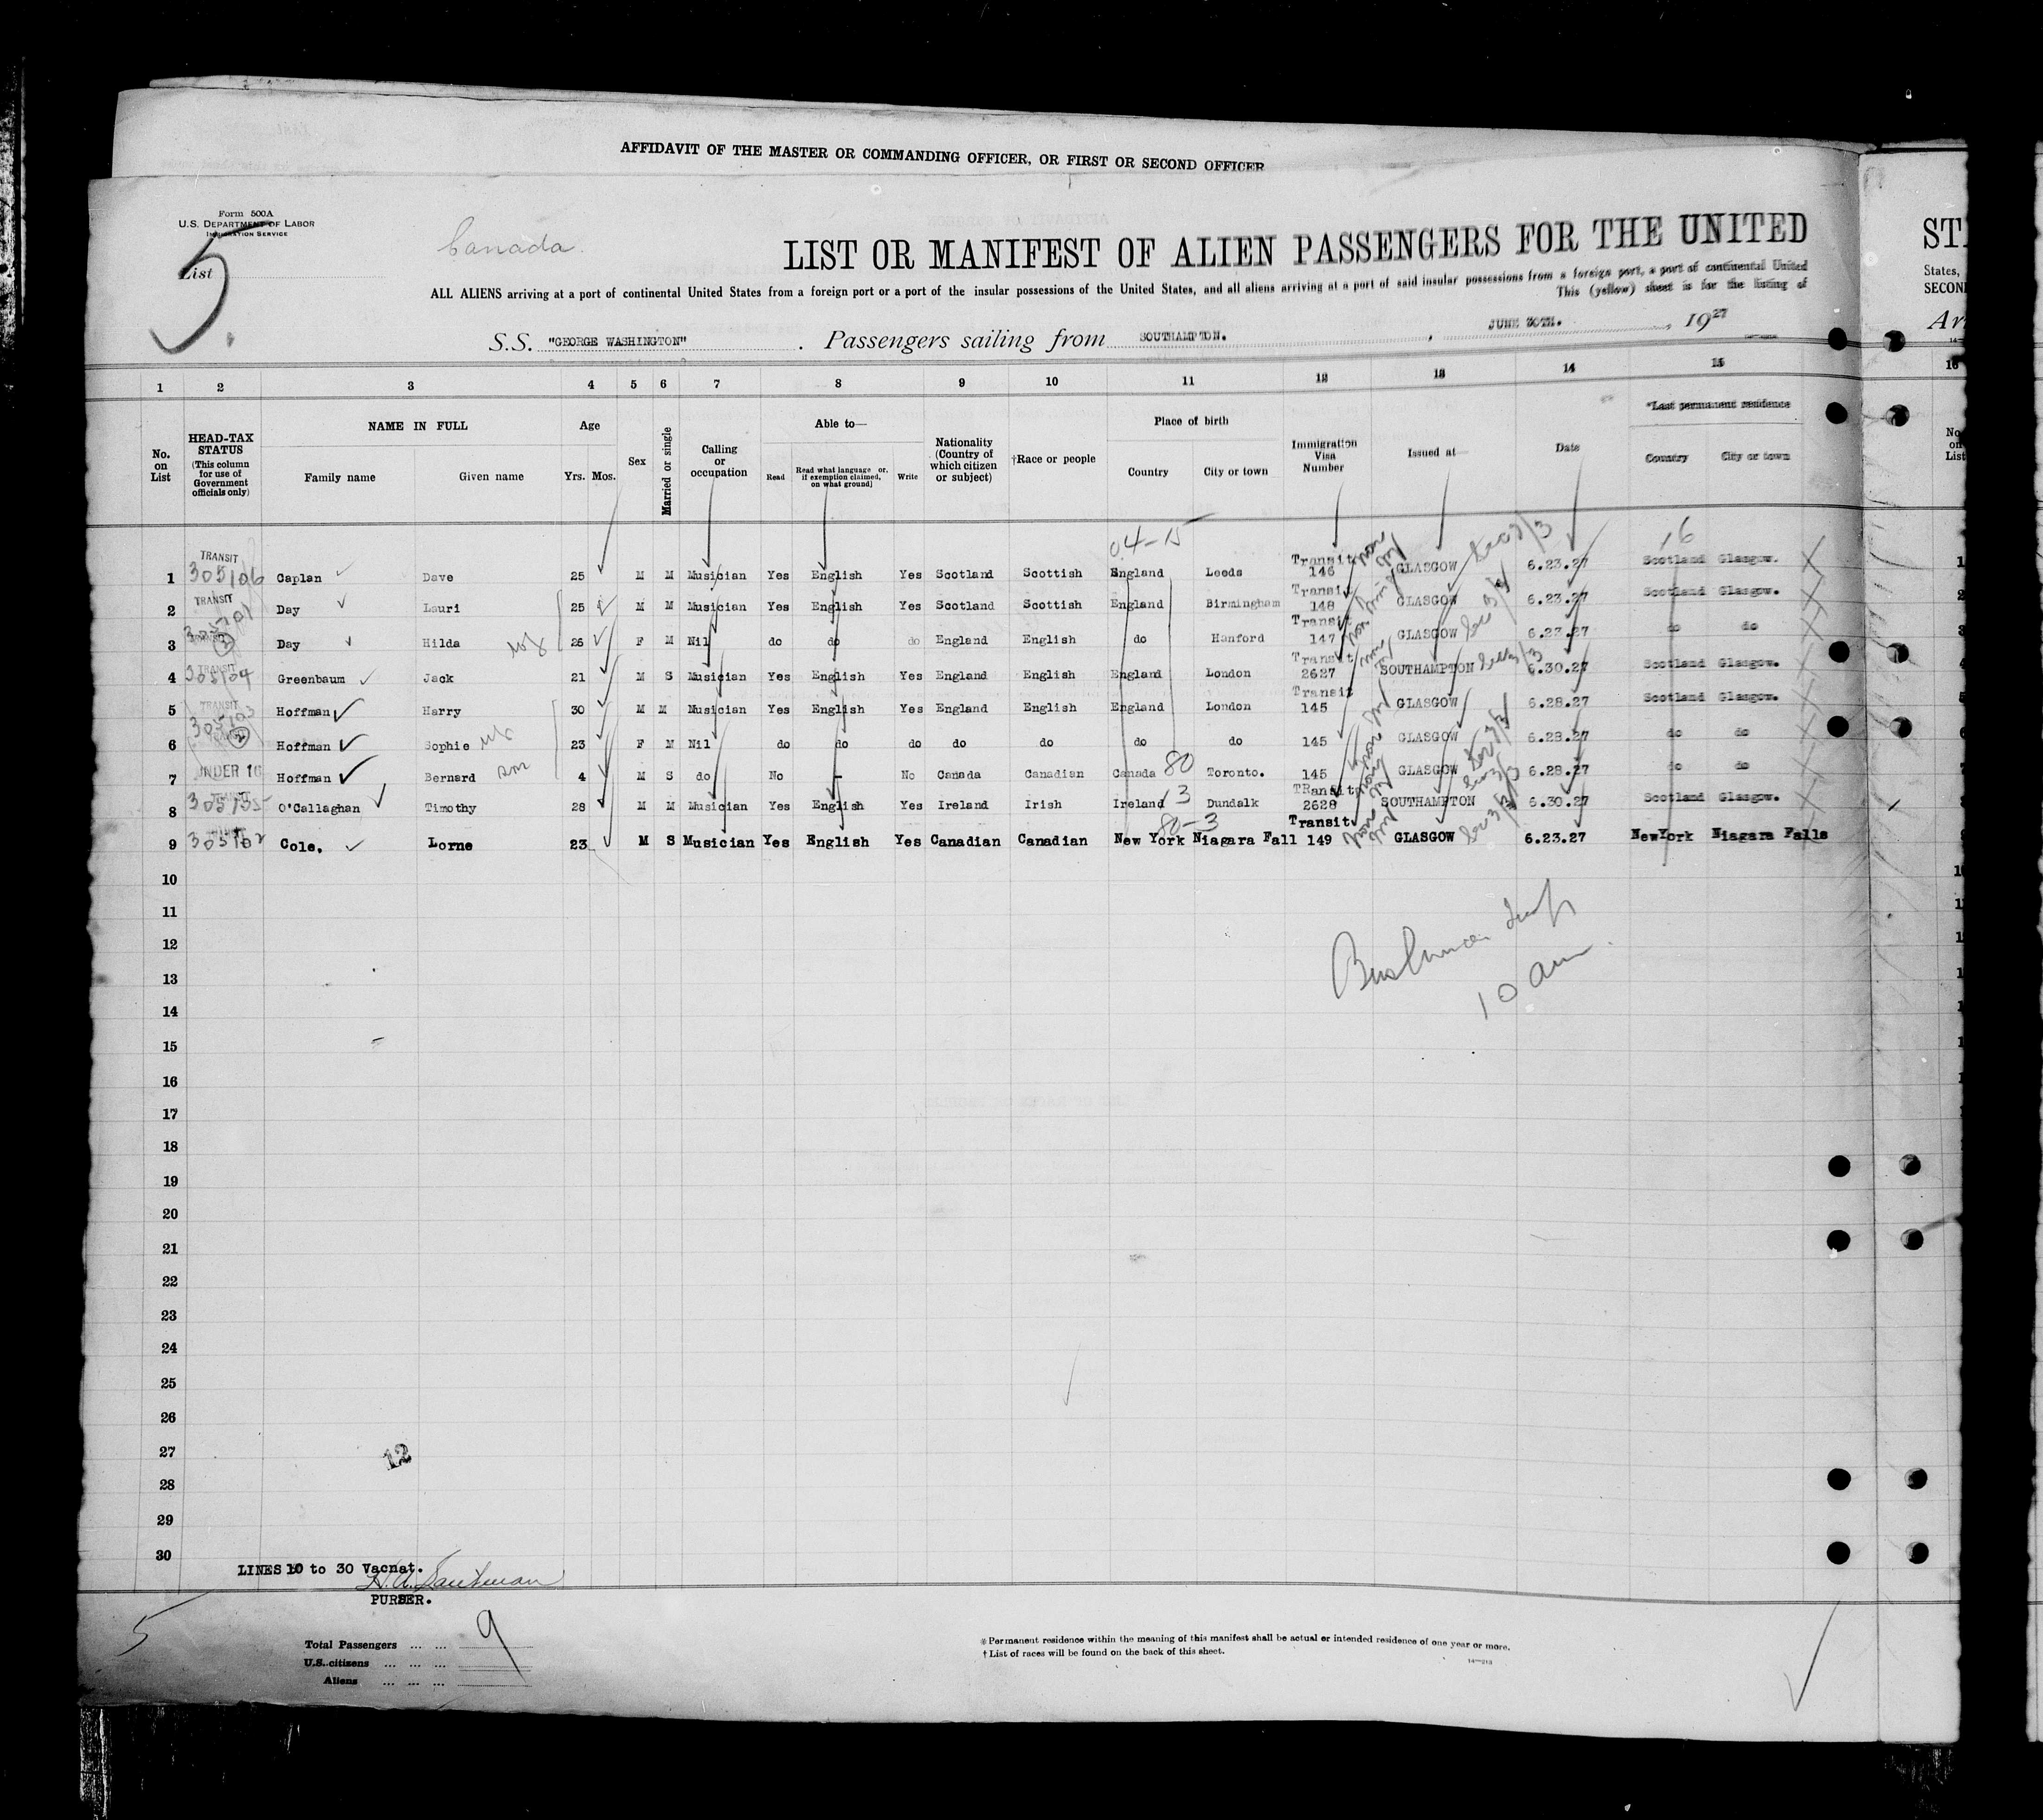 AFFIDAVIT OF THE MASTER OR COMMANDING OFFICER, OR FIRST OR SECOND OFFICER
Form 500A
U.S. DEPARTMENT OF LABOR
IMMIGRATION SERVICE
List 5.
Canada.
LIST OR MANIFEST OF ALIEN PASSENGERS FOR THE UNITED
ALL ALIENS arriving at a port of continental United States from a foreign port or a port of the insular possessions of the United States, and all aliens arriving at a port of said insular possessions from a foreign port, a port of continental United
This (yellow) sheet is for the listing of
S.S. "GEORGE WASHINGTON" . Passengers sailing from SOUTHAMPTON. , JUNE 30TH. , 1927
STA
States,
SECOND
Arr
1 2 3 4 5 6 7 8 9 10 11 12 13 14 15 16
No. on List
HEAD-TAX STATUS (This column for use of Government officials only)
NAME IN FULL
Family name Given name
Age
Yrs. Mos.
Sex
Married or single
Calling or occupation
Able to—
Read Read what language or, if exemption claimed, on what ground] Write
Nationality (Country of which citizen or subject)
†Race or people
Place of birth
Country City or town
Immigration Visa Number
Issued at
Date
*Last permanent residence
Country City or town
No. on List
04-15 16
1 TRANSIT 305106 Caplan Dave 25 M M Musician Yes English Yes Scotland Scottish England Leeds Transit 146 GLASGOW 6.23.27 Scotland Glasgow.
2 TRANSIT Day Lauri 25 M M Musician Yes English Yes Scotland Scottish England Birmingham Transit 148 GLASGOW 6.23.27 Scotland Glasgow.
3 305101 2 Day Hilda wf 26 F M Nil do do do England English do Hanford Transit 147 GLASGOW 6.23.27 do do
4 TRANSIT 305104 Greenbaum Jack 21 M S Musician Yes English Yes England English England London Transit 2627 SOUTHAMPTON 6.30.27 Scotland Glasgow.
5 TRANSIT 305103 Hoffman Harry 30 M M Musician Yes English Yes England English England London Transit 145 GLASGOW 6.28.27 Scotland Glasgow.
6 2 Hoffman Sophie wf 23 F M Nil do do do do do do do 145 GLASGOW 6.28.27 do do
7 UNDER 16 Hoffman Bernard son 4 M S do No - No Canada Canadian Canada 80 Toronto. 145 GLASGOW 6.28.27 do do
8 305135 O'Callaghan Timothy 28 M M Musician Yes English Yes Ireland Irish Ireland 13 Dundalk TRansit 2628 SOUTHAMPTON 6.30.27 Scotland Glasgow.
80-3
9 305102 Cole, Lorne 23 M S Musician Yes English Yes Canadian Canadian New York Niagara Fall Transit 149 GLASGOW 6.23.27 NewYork Niagara Falls
10
11
12
13
14
15
16
17
18
19
20
21
22
23
24
25
26
27
28
29
30
10 am
12
LINES 10 to 30 Vacnat.
PURSER.
5
Total Passengers ... ... 9
U.S. citizens ... ... ...
Aliens ... ... ...
※Permanent residence within the meaning of this manifest shall be actual or intended residence of one year or more.
† List of races will be found on the back of this sheet.
14—213